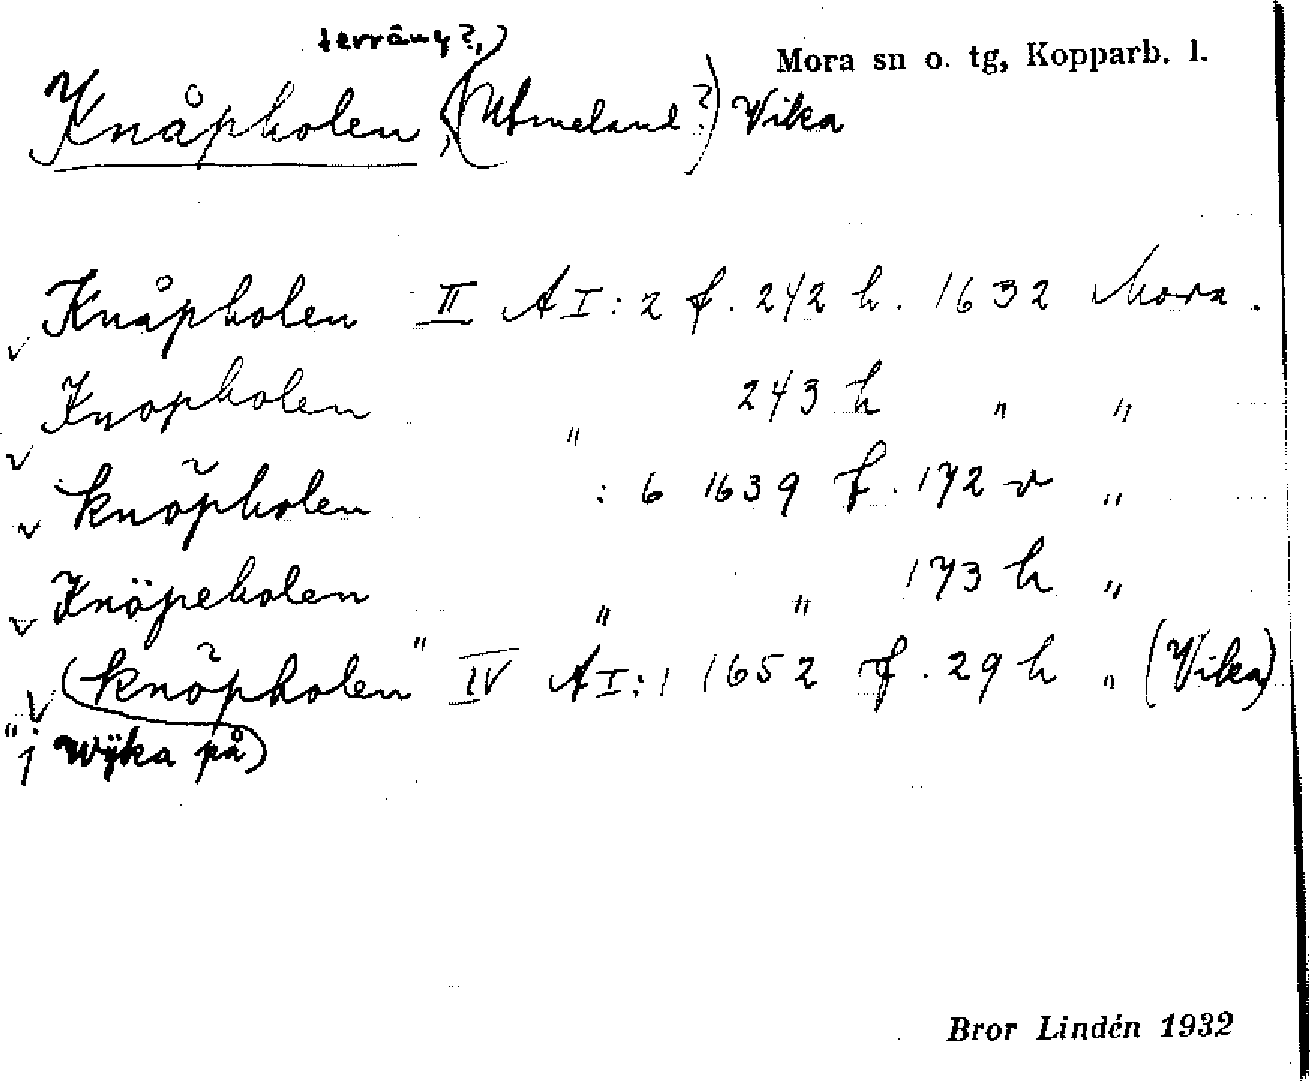 terräng?,
Mora sn o. tg, Kopparb. l.
Knåpholen, (Utmeland?) Vika
v Knåpholen II A I: 2 f. 242 h. 1632 Mora.
v Knopholen " 243 h " "
v knõpholen : 6 1639 f. 172 v "
v Knöpeholen " " 173 h "
v (knõpholen" IV A I: 1 1652 f. 29 h " (Vika)
"j Wÿka på)
Bror Lindén 1932